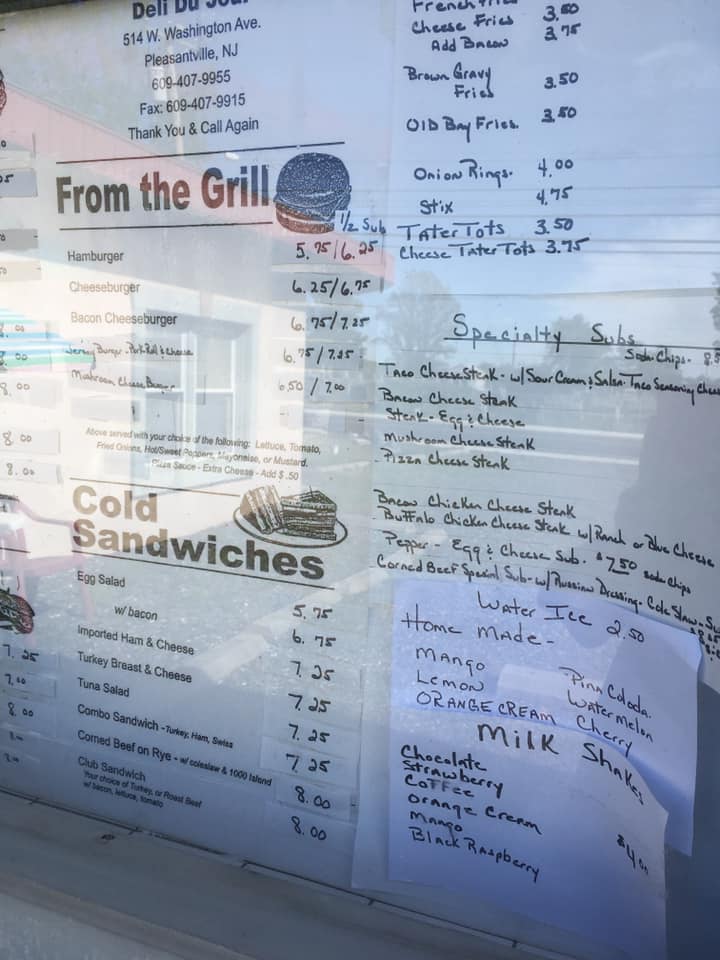 Deli Du Jour
514 W. Washington Ave.
Pleasantville, NJ
609-407-9955
Fax: 609-407-9915
Thank You & Call Again
From the Grill
1/2 Sub
Hamburger 5.75/6.25
Cheeseburger 6.25/6.75
Bacon Cheeseburger 6.75/7.25
Jersey Burger - Pork Roll & cheese 6.75/7.25
Mushroom Cheese Burger 6.50/7.00
Above served with your choice of the following: Lettuce, Tomato,
Fried Onions, Hot/Sweet Peppers, Mayonaise, or Mustard.
Pizza Sauce - Extra Cheese - Add $.50
Cold
Sandwiches
Egg Salad 5.75
w/ bacon 6.75
Imported Ham & Cheese 7.25
Turkey Breast & Cheese 7.25
Tuna Salad 7.25
Combo Sandwich - Turkey, Ham, Swiss 7.25
Corned Beef on Rye - w/ coleslaw & 1000 Island 8.00
Club Sandwich 8.00
Your choice of Turkey, or Roast Beef
w/ bacon, lettuce, tomato
8.00
8.00
8.00
8.00
8.00
7.25
7.00
8.00
French Fries 3.50
Cheese Fries 3.75
Add Bacon
Brown Gravy
Fries 3.50
Old Bay Fries. 3.50
Onion Rings. 4.00
Stix 4.75
Tater Tots 3.50
Cheese Tater Tots 3.75
Specialty Subs
Soda. Chips.
Taco Cheese Steak - w/ Sour Cream & Salsa. Taco Seasoning Cheese
Bacon Cheese Steak
Steak - Egg & Cheese
Mushroom Cheese Steak
Pizza Cheese Steak
Bacon Chicken Cheese Steak
Buffalo Chicken Cheese Steak w/ Ranch or Blue Cheese
Pepper - Egg & Cheese Sub. $7.50 soda chips
Corned Beef Special Sub - w/ Russian Dressing - Cole Slaw -
Water Ice 2.50
Home Made -
Mango Pina Colada.
Lemon Watermelon
Orange Cream Cherry
Milk Shakes
Chocolate
Strawberry
Coffee
Orange Cream $4.00
Mango
Black Raspberry